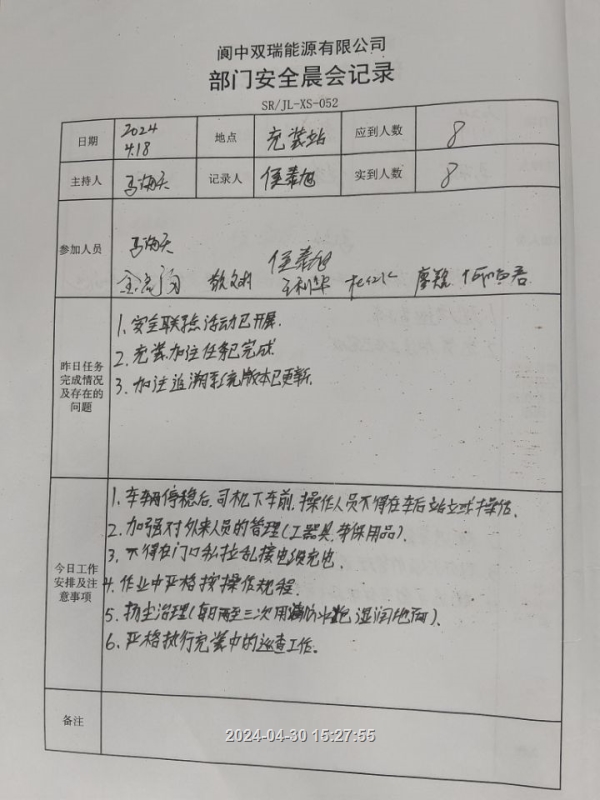 阆中双瑞能源有限公司
部门安全晨会记录
SR/JL-XS-052
日期 2024 4.18 地点 充装站 应到人数 8
主持人 马海天 记录人 任素旭 实到人数 8
参加人员 马海天 任素旭
王利华 廖
昨日任务完成情况及存在的问题
1、安全联系点活动已开展.
2、充装加注任务已完成.
3、加注追溯系统版本已更新.
今日工作安排及注意事项
1、车辆停稳后,司机下车前,操作人员不得在车后站立或操作.
2、加强对外来人员的管理(工器具,劳保用品).
3、不得在门口私拉乱接电线充电.
4、作业中严格按操作规程.
5、扬尘治理(每日两至三次用消防水炮湿润地面).
6、严格执行充装中的巡查工作。
备注
2024-04-30 15:27:55